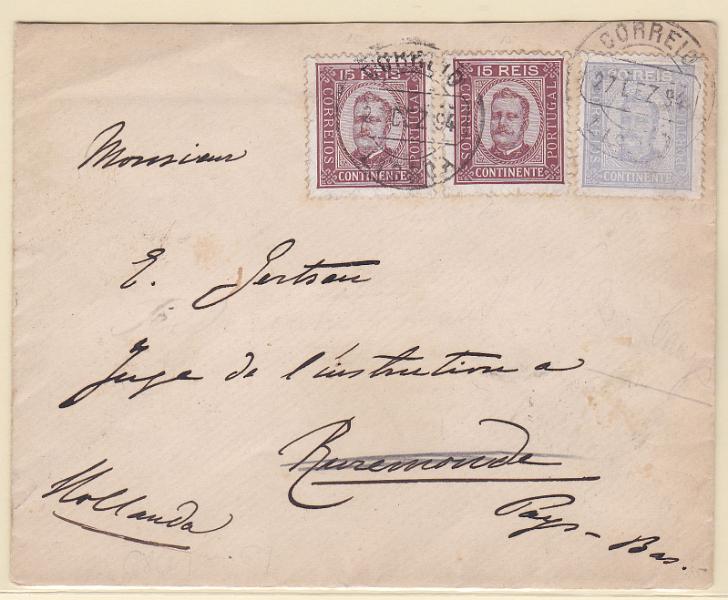 15 REIS
CORREIOS
PORTUGAL
CONTINENTE
15 REIS
CORREIOS
PORTUGAL
CONTINENTE
REIS
PORTUGAL
CONTINENTE
CORREIO
DEZ 94
CORREIO
27 DEZ 94
Monsieur
E. Jertsen
Juge de l'instruction a
Ruremonde
Hollanda
Pays-Bas.